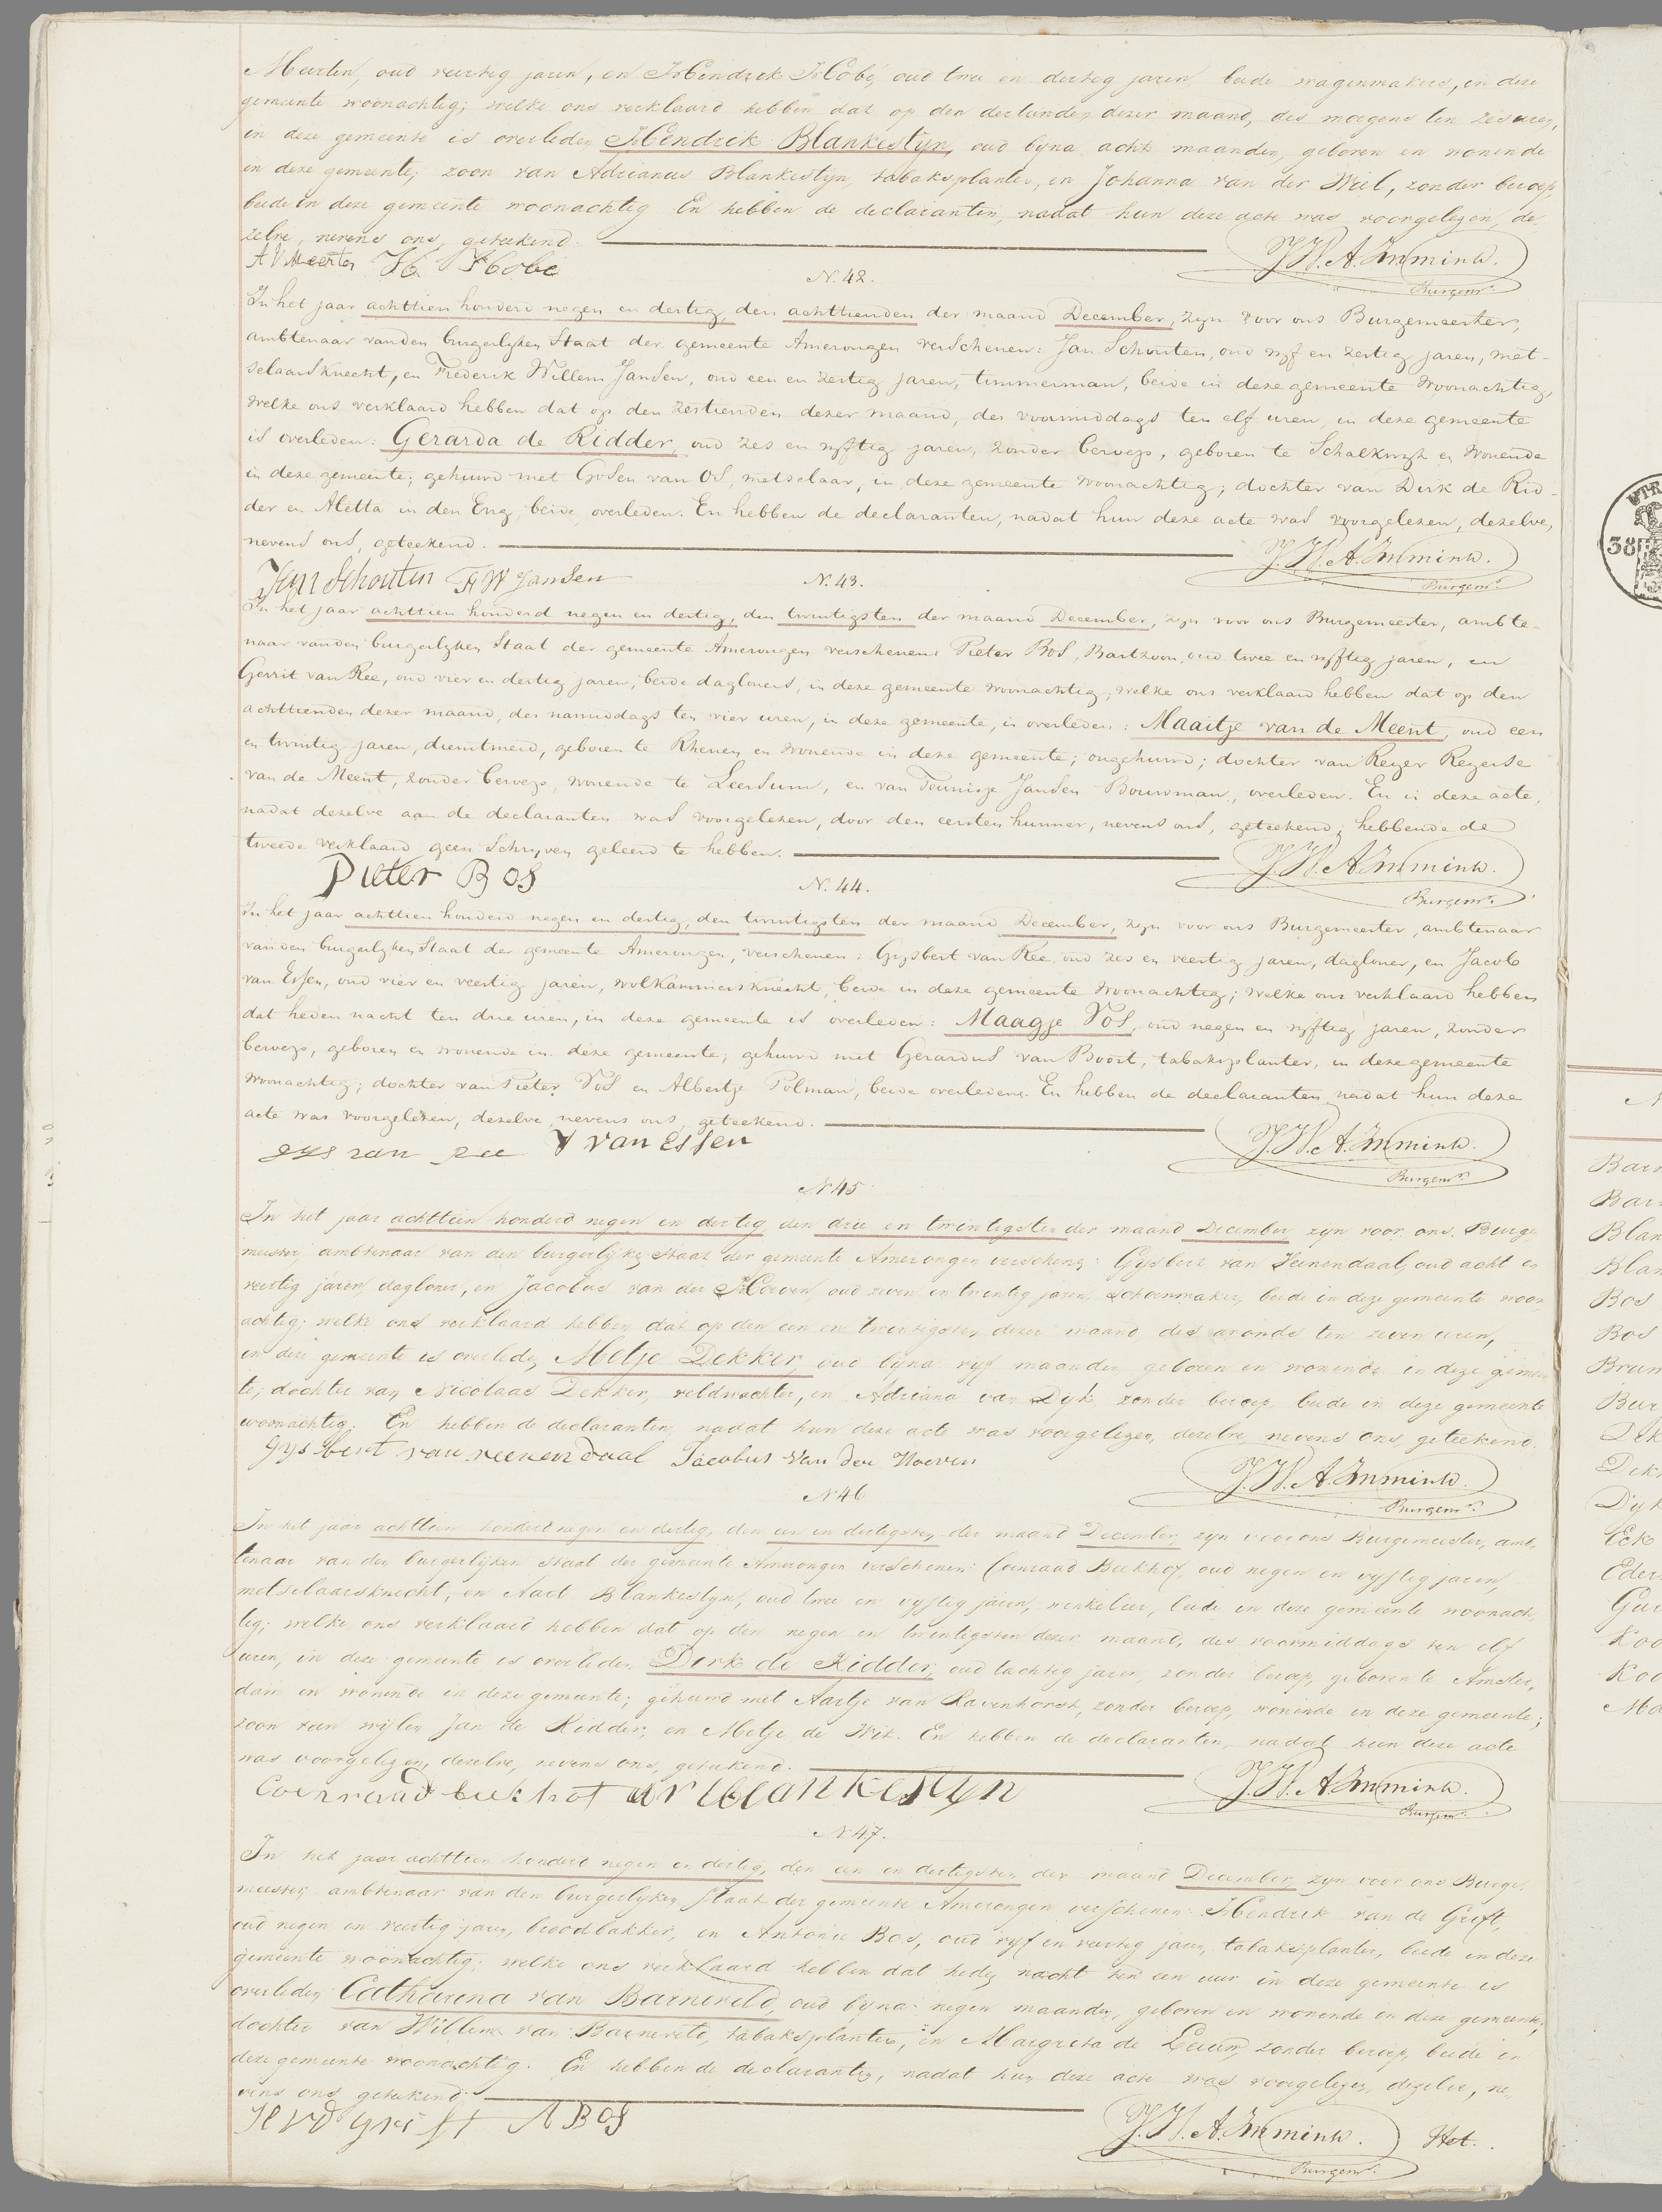 Meerten, oud veertig jaren, en Hendrik Hobé, oud twee en dertig jaren, beide wagenmakers, in deze
gemeente woonachtig; welke ons verklaard hebben dat op den dertienden dezer maand, des morgens ten zes uren,
in deze gemeente is overleden Hendrik Blankestijn, oud bijna acht maanden, geboren en wonende
in deze gemeente, zoon van Adrianus Blankestijn, tabaksplanter, en Johanna van der Wiel, zonder beroep,
beide in deze gemeente woonachtig En hebben de declaranten, nadat hun deze acte was voorgelezen, de-
zelve, nevens ons, geteekend.
A V Meerten H Hobé
J.W.A. Immink.
Burgemr.
N. 42.
In het jaar achttien honderd negen en dertig, den achttienden der maand December, zijn voor ons Burgemeester,
ambtenaar van den burgerlijken Staat der gemeente Amerongen verschenen: Jan Schouten, oud vijf en zestig jaren, met-
selaarsknecht, en Frederik Willem Jansen, oud een en zestig jaren, timmerman, beide in deze gemeente woonachtig,
welke ons verklaard hebben dat op den zestienden dezer maand, des voormiddags ten elf uren, in deze gemeente
is overleden: Gerarda de Ridder, oud zes en vijftig jaren, zonder beroep, geboren te Schalkwijk en wonende
in deze gemeente; gehuwd met Gosen van Os, metselaar, in deze gemeente woonachtig; dochter van Dirk de Rid-
der en Aletta in den Eng, beide overleden. En hebben de declaranten, nadat hun deze acte was voorgelezen, dezelve,
nevens ons, geteekend.
Jan Schouten F W Jansen
J.W.A. Immink.
Burgemr.
N. 43.
In het jaar achttien honderd negen en dertig, den twintigsten der maand December, zijn voor ons Burgemeester, ambte-
naar van den burgerlijken Staat der gemeente Amerongen verschenen: Pieter Bos, Bartzoon, oud twee en vijftig jaren, en
Gerrit van Ree, oud vier en dertig jaren, beide dagloners, in deze gemeente woonachtig; welke ons verklaard hebben dat op den
achttienden dezer maand, des namiddags ten vier uren, in deze gemeente, is overleden: Maaitje van de Meent, oud een
en twintig jaren, dienstmeid, geboren te Rhenen en wonende in deze gemeente; ongehuwd; dochter van Reyer Reyerse
van de Meent, zonder beroep, wonende te Leersum, en van Teunisje Jansen Bouwman, overleden. En is deze acte,
nadat dezelve aan de declaranten was voorgelezen, door den eersten hunner, nevens ons, geteekend; hebbende de
tweede verklaard geen Schrijven geleerd te hebben.
Pieter Bos
J.W.A. Immink.
Burgemr.
N. 44.
In het jaar achttien honderd negen en dertig, den twintigsten der maand December, zijn voor ons Burgemeester, ambtenaar
van den burgerlijken Staat der gemeente Amerongen, verschenen: Gijsbert van Ree, oud zes en veertig jaren, dagloner, en Jacob
van Essen, oud vier en veertig jaren, wolkammersknecht, beide in deze gemeente woonachtig; welke ons verklaard hebben
dat heden nacht ten drie uren, in deze gemeente is overleden: Maagje Vos, oud negen en vijftig jaren, zonder
beroep, geboren en wonende in deze gemeente; gehuwd met Gerardus van Boort, tabaksplanter, in deze gemeente
woonachtig; dochter van Pieter Vos en Albertje Polman, beide overleden. En hebben de declaranten nadat hun deze
acte was voorgelezen, dezelve, nevens ons, geteekend.
gys van ree J van Essen
J.W.A. Immink.
Burgemr.
N 45
In het jaar achttien honderd negen en dertig den drie en twintigsten der maand December zijn voor ons Burge-
meester, ambtenaar van den burgerlijken Staat der gemeente Amerongen verschenen: Gijsbert van Veenendaal, oud acht en
veertig jaren, dagloner, en Jacobus van der Hoeven, oud zeven en twintig jaren Schoenmaker, beide in deze gemeente woon-
achtig; welke ons verklaard hebben dat op den een en twintigsten dezer maand des avonds ten zeven uren,
in deze gemeente is overleden, Metje Dekker, oud bijna vijf maanden geboren en wonende in deze gemeen-
te, dochter van Nicolaas Dekker, veldwachter, en Adriana van Dijk, zonder beroep, beide in deze gemeente
woonachtig. En hebben de declaranten, nadat hun deze acte was voorgelezen, dezelve, nevens ons, geteekend.
Gysbert van veenendaal Jacobus Van der Hoeven
J.W.A. Immink.
Burgemr.
N 46
In het jaar achttien honderd negen en dertig, den een en dertigsten der maand December, zijn voor ons Burgemeester, amb-
tenaar van den burgerlijken Staat der gemeente Amerongen verschenen: Coenraad Beekhof, oud negen en vijftig jaren,
metselaarsknecht, en Aart Blankestijn, oud twee en vijftig jaren, winkelier, beide in deze gemeente woonach-
tig; welke ons verklaard hebben dat op den negen en twintigsten dezer maand, des voormiddags ten elf
uren, in deze gemeente is overleden Dirk de Ridder, oud tachtig jaren, zonder beroep, geboren te Amster-
dam en wonende in deze gemeente; gehuwd met Aartje van Ravenhorst, zonder beroep, wonende in deze gemeente;
zoon van wijlen Jan de Ridder, en Metje de Wit. En hebben de declaranten, nadat hun deze acte
was voorgelezen, dezelve, nevens ons, geteekend.
Coenraad beekhof ar blankestyn
J.W.A. Immink.
Burgemr.
N 47.
In het jaar achttien honderd negen en dertig, den een en dertigsten der maand December, zijn voor ons Burge-
meester, ambtenaar van den burgerlijken Staat der gemeente Amerongen verschenen: Hendrik van de Grift,
oud negen en veertig jaren, broodbakker, en Antonie Bos, oud vijf en veertig jaren, tabaksplanter, beide in deze
gemeente woonachtig; welke ons verklaard hebben dat heden nacht ten een uur in deze gemeente is
overleden, Catharina van Barneveld, oud bijna negen maanden, geboren en wonende in deze gemeente,
dochter van Willem van Barneveld, tabaksplanter, en Margreta de Leeuw, zonder beroep, beide in
deze gemeente woonachtig. En hebben de declaranten, nadat hun deze acte was voorgelezen, dezelve, ne-
vens ons geteekend.
H V D grift A Bos
J.W.A. Immink.
Burgemr.
Het
38
Blan
Blan
Bos
Bos
Brun
Eck
Eder
Koo
Koo